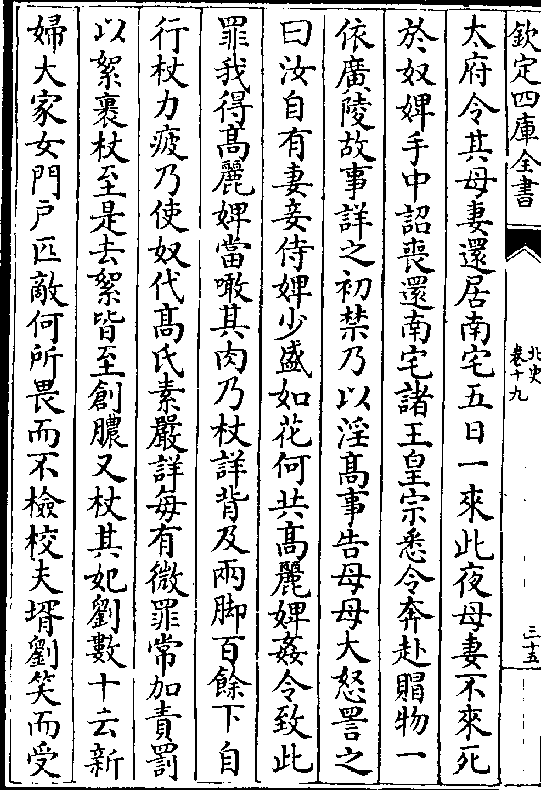 欽定四庫全書
北史
卷十九
三十五
太府令其母妻還居南宅五日一來此夜母妻不來死
於奴婢手中詔喪還南宅諸王皇宗悉令奔赴賵物一
依廣陵故事詳之初禁乃以淫髙事告母母大怒詈之
曰汝自有妻妾侍婢少盛如花何共髙麗婢姦令致此
罪我得髙麗婢當噉其肉乃杖詳背及兩脚百餘下自
行杖力疲乃使奴代髙氏素嚴詳每有微罪常加責罰
以絮裹杖至是去絮皆至創膿又杖其妃劉數十云新
婦大家女門戸匹敵何所畏而不檢校夫壻劉笑而受